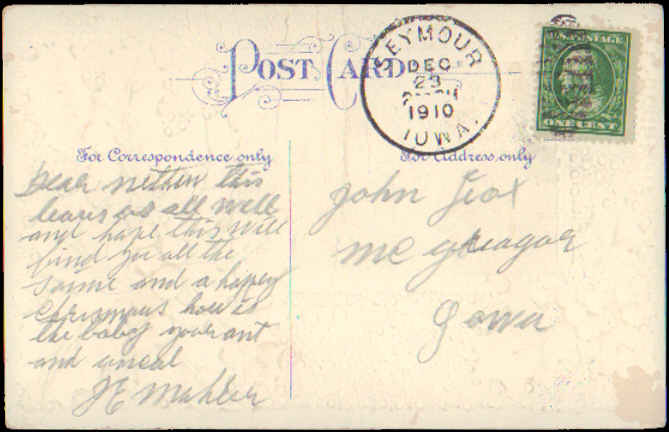 POST CARD
SEYMOUR
DEC
23
1910
IOWA.
U.S. POSTAGE
ONE CENT
For Correspondence only
Dear nethew this
leaves us all well
and hope this will
find you all the
same and a happy
Chrismous how is
the baby your ant
and uncal
J E Mahler
For Address only
John
Mc Greagor
Iowa